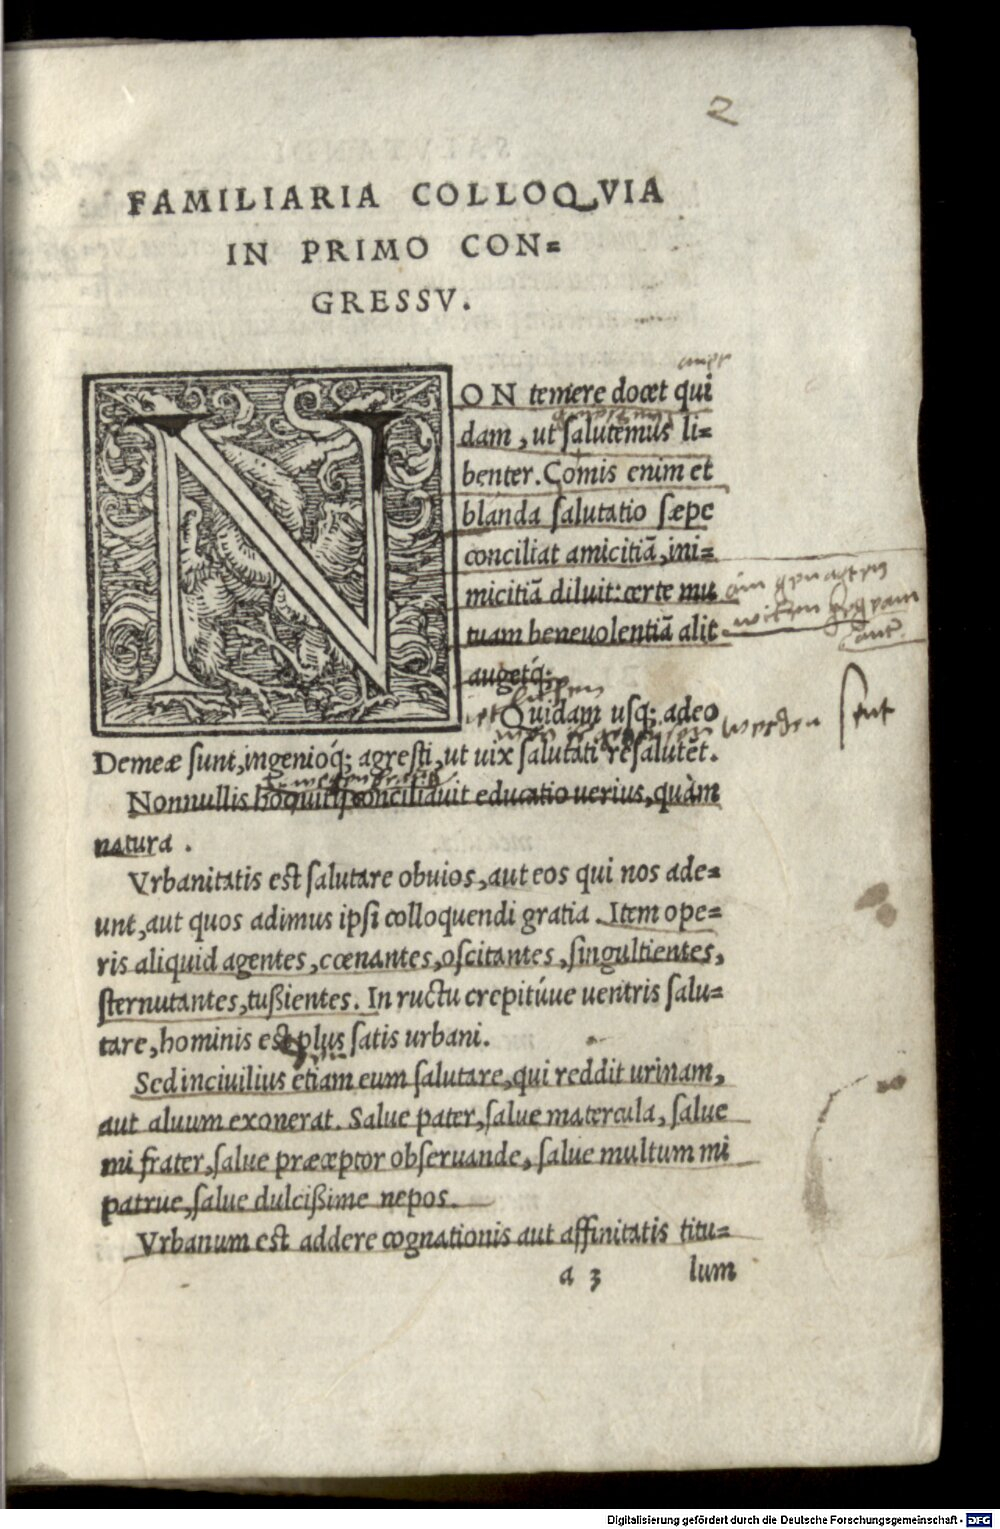 2
FAMILIARIA COLLOQVIA
IN PRIMO CON=
GRESSV.
NON temere docet qui
dam, ut salutemus li=
benter. Comis enim et
blanda salutatio sæpe
conciliat amicitiã, ini=
micitiã diluit: certe mu
tuam beneuolentiã alit
augetq́;.
Quidam usq; adeo
Demeæ sunt, ingenioq́; agresti, ut uix salutati resalutet.
Nonnullis hoc uitij conciliauit educatio uerius, quàm
natura.
Vrbanitatis est salutare obuios, aut eos qui nos ade=
unt, aut quos adimus ipsi colloquendi gratia. Item ope=
ris aliquid agentes, cœnantes, oscitantes, singultientes,
sternutantes, tußientes. In ructu crepitúue uentris salu=
tare, hominis est plus satis urbani.
Sed inciuilius etiam eum salutare, qui reddit urinam,
aut aluum exonerat. Salue pater, salue matercula, salue
mi frater, salue præceptor obseruande, salue multum mi
patrue, salue dulcißime nepos.
Vrbanum est addere cognationis aut affinitatis titu=
a 3 lum
Digitalisierung gefördert durch die Deutsche Forschungsgemeinschaft - DFG